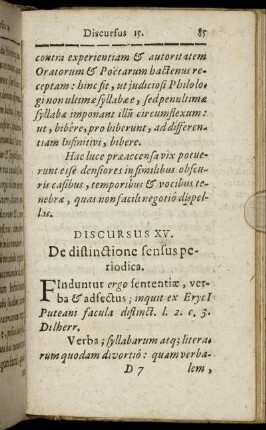 Discursus 15. 85
contra experientiam & autoritatem
Oratorum & Poëtarum hactenus re-
ceptam: hinc fit, ut judiciosi Philolo-
gi non ultimæ syllabæ, sed penultimæ
syllabæ imponant illũ circumflexum:
ut, bibêre, pro biberunt, ad differen-
tiam Infinitivi, bibere.
Hac luce præaccensa vix potue-
runt esse densiores in similibus obscu-
ris casibus, temporibus & vocibus te-
nebræ, quas non facili negotio dispel-
las.
DISCURSUS XV.
De distinctione sensus pe-
riodica.
FInduntur ergo sententiæ, ver-
ba & adfectus; inquit ex ErycI
Puteani facula distinct. l. 2. c. 3.
Dilherr.
Verba; syllabarum atq; litera-
rum quodam divortiô: quam verba-
D 7 lem,